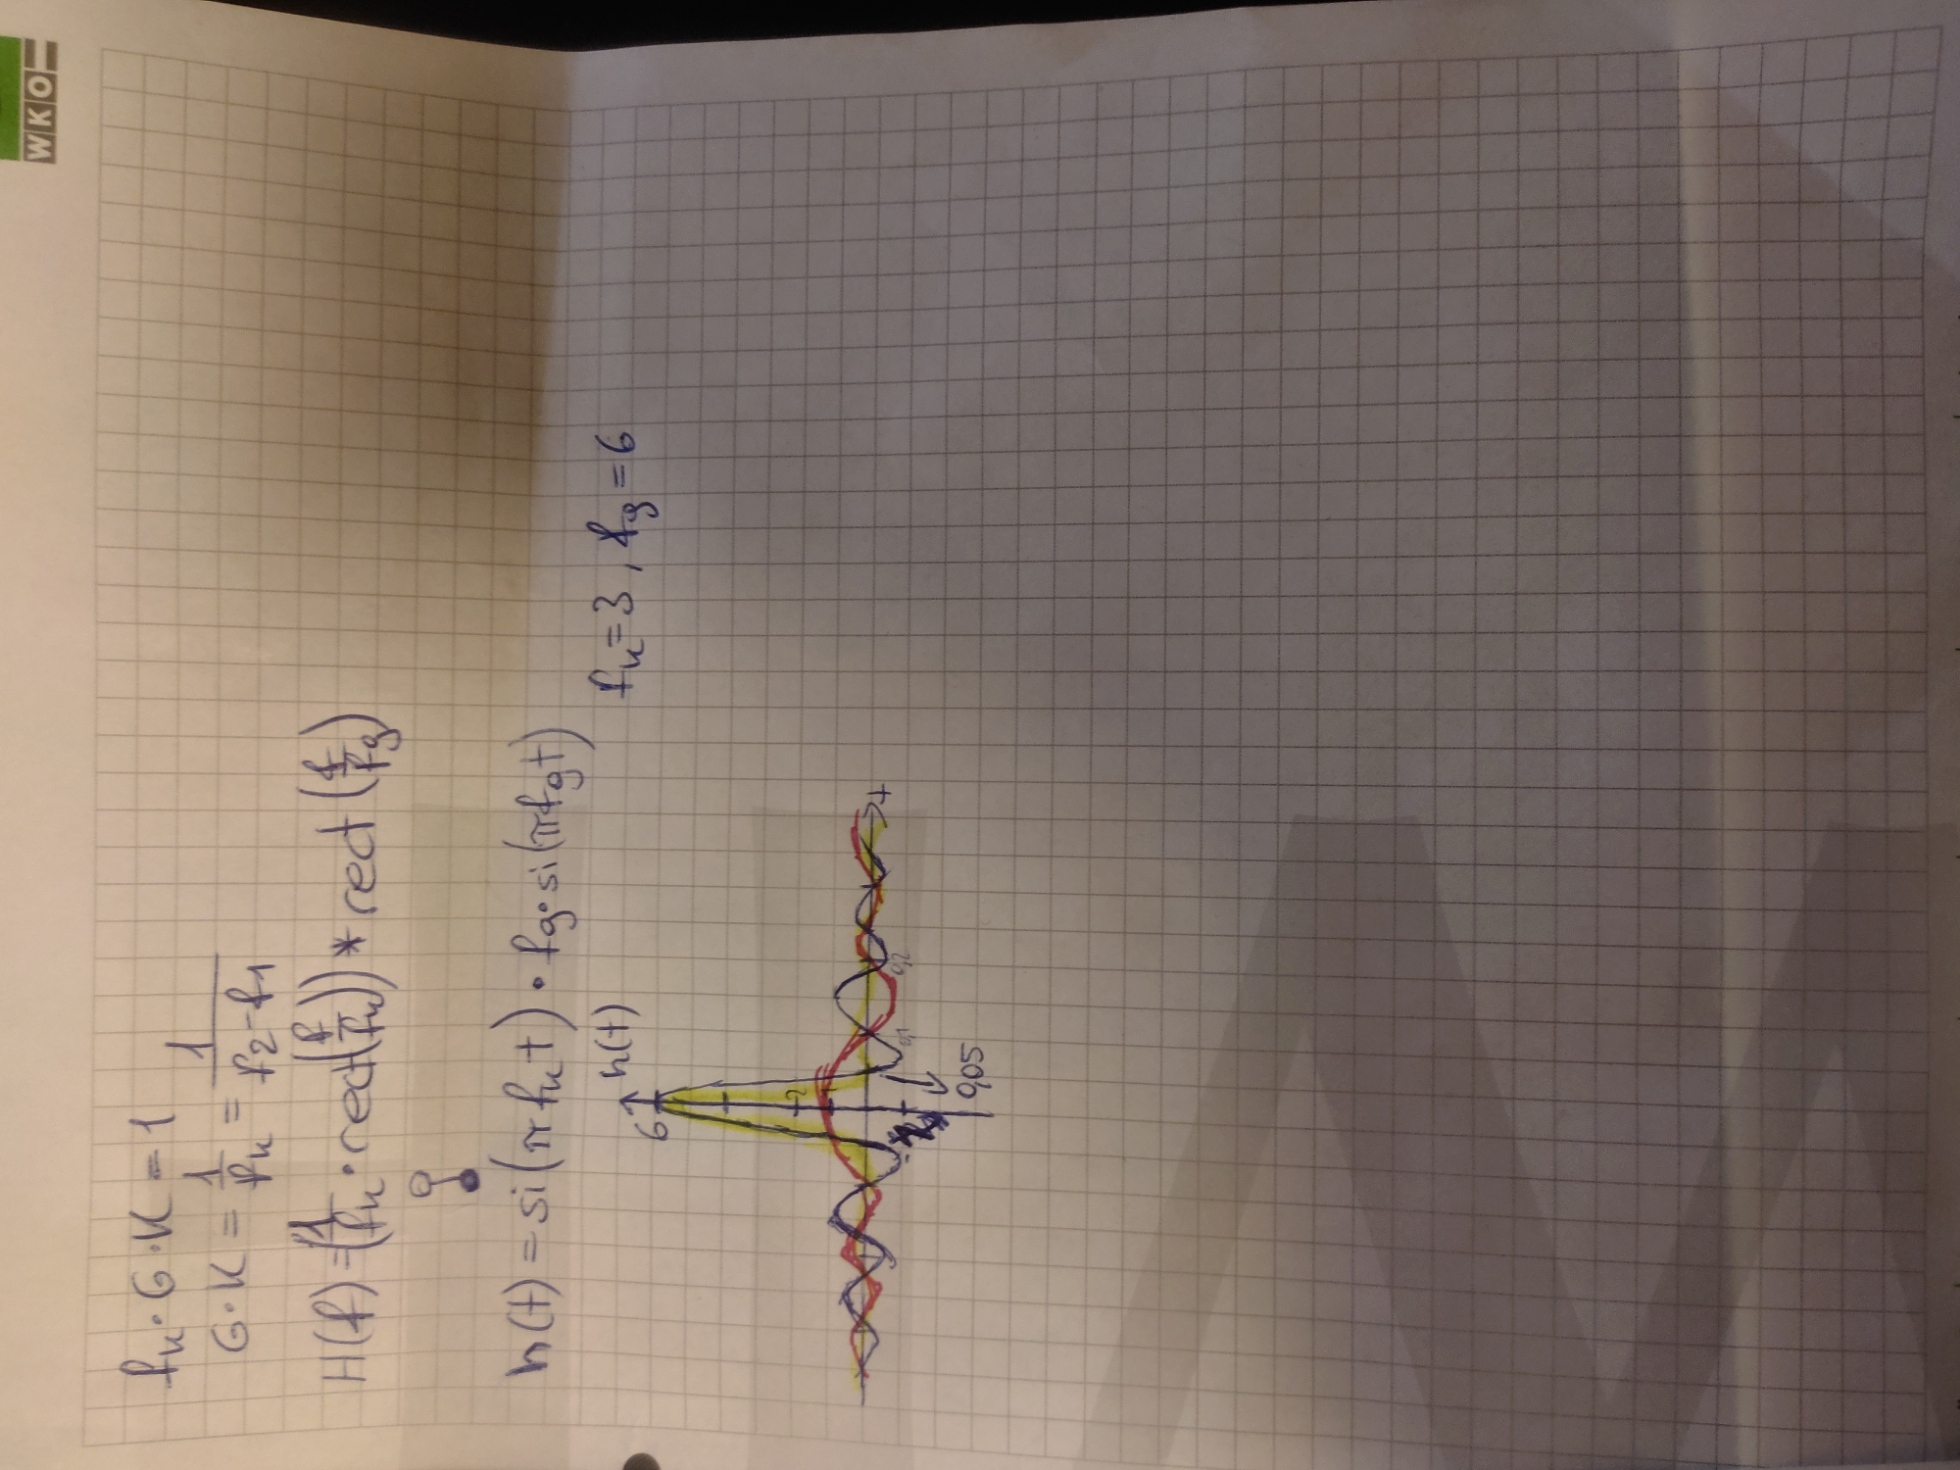 WKO
fₖ · G · K = 1
G · K = 1/fₖ = 1/(f₂-f₁)
H(f) = (1/fₖ · rect(f/fₖ)) * rect(f/f_g)
h(t) = si(πfₖt) · f_g · si(πf_gt)
fₖ=3, f_g=6
h(t)
6
2
1
t
0,1
0,2
0,05